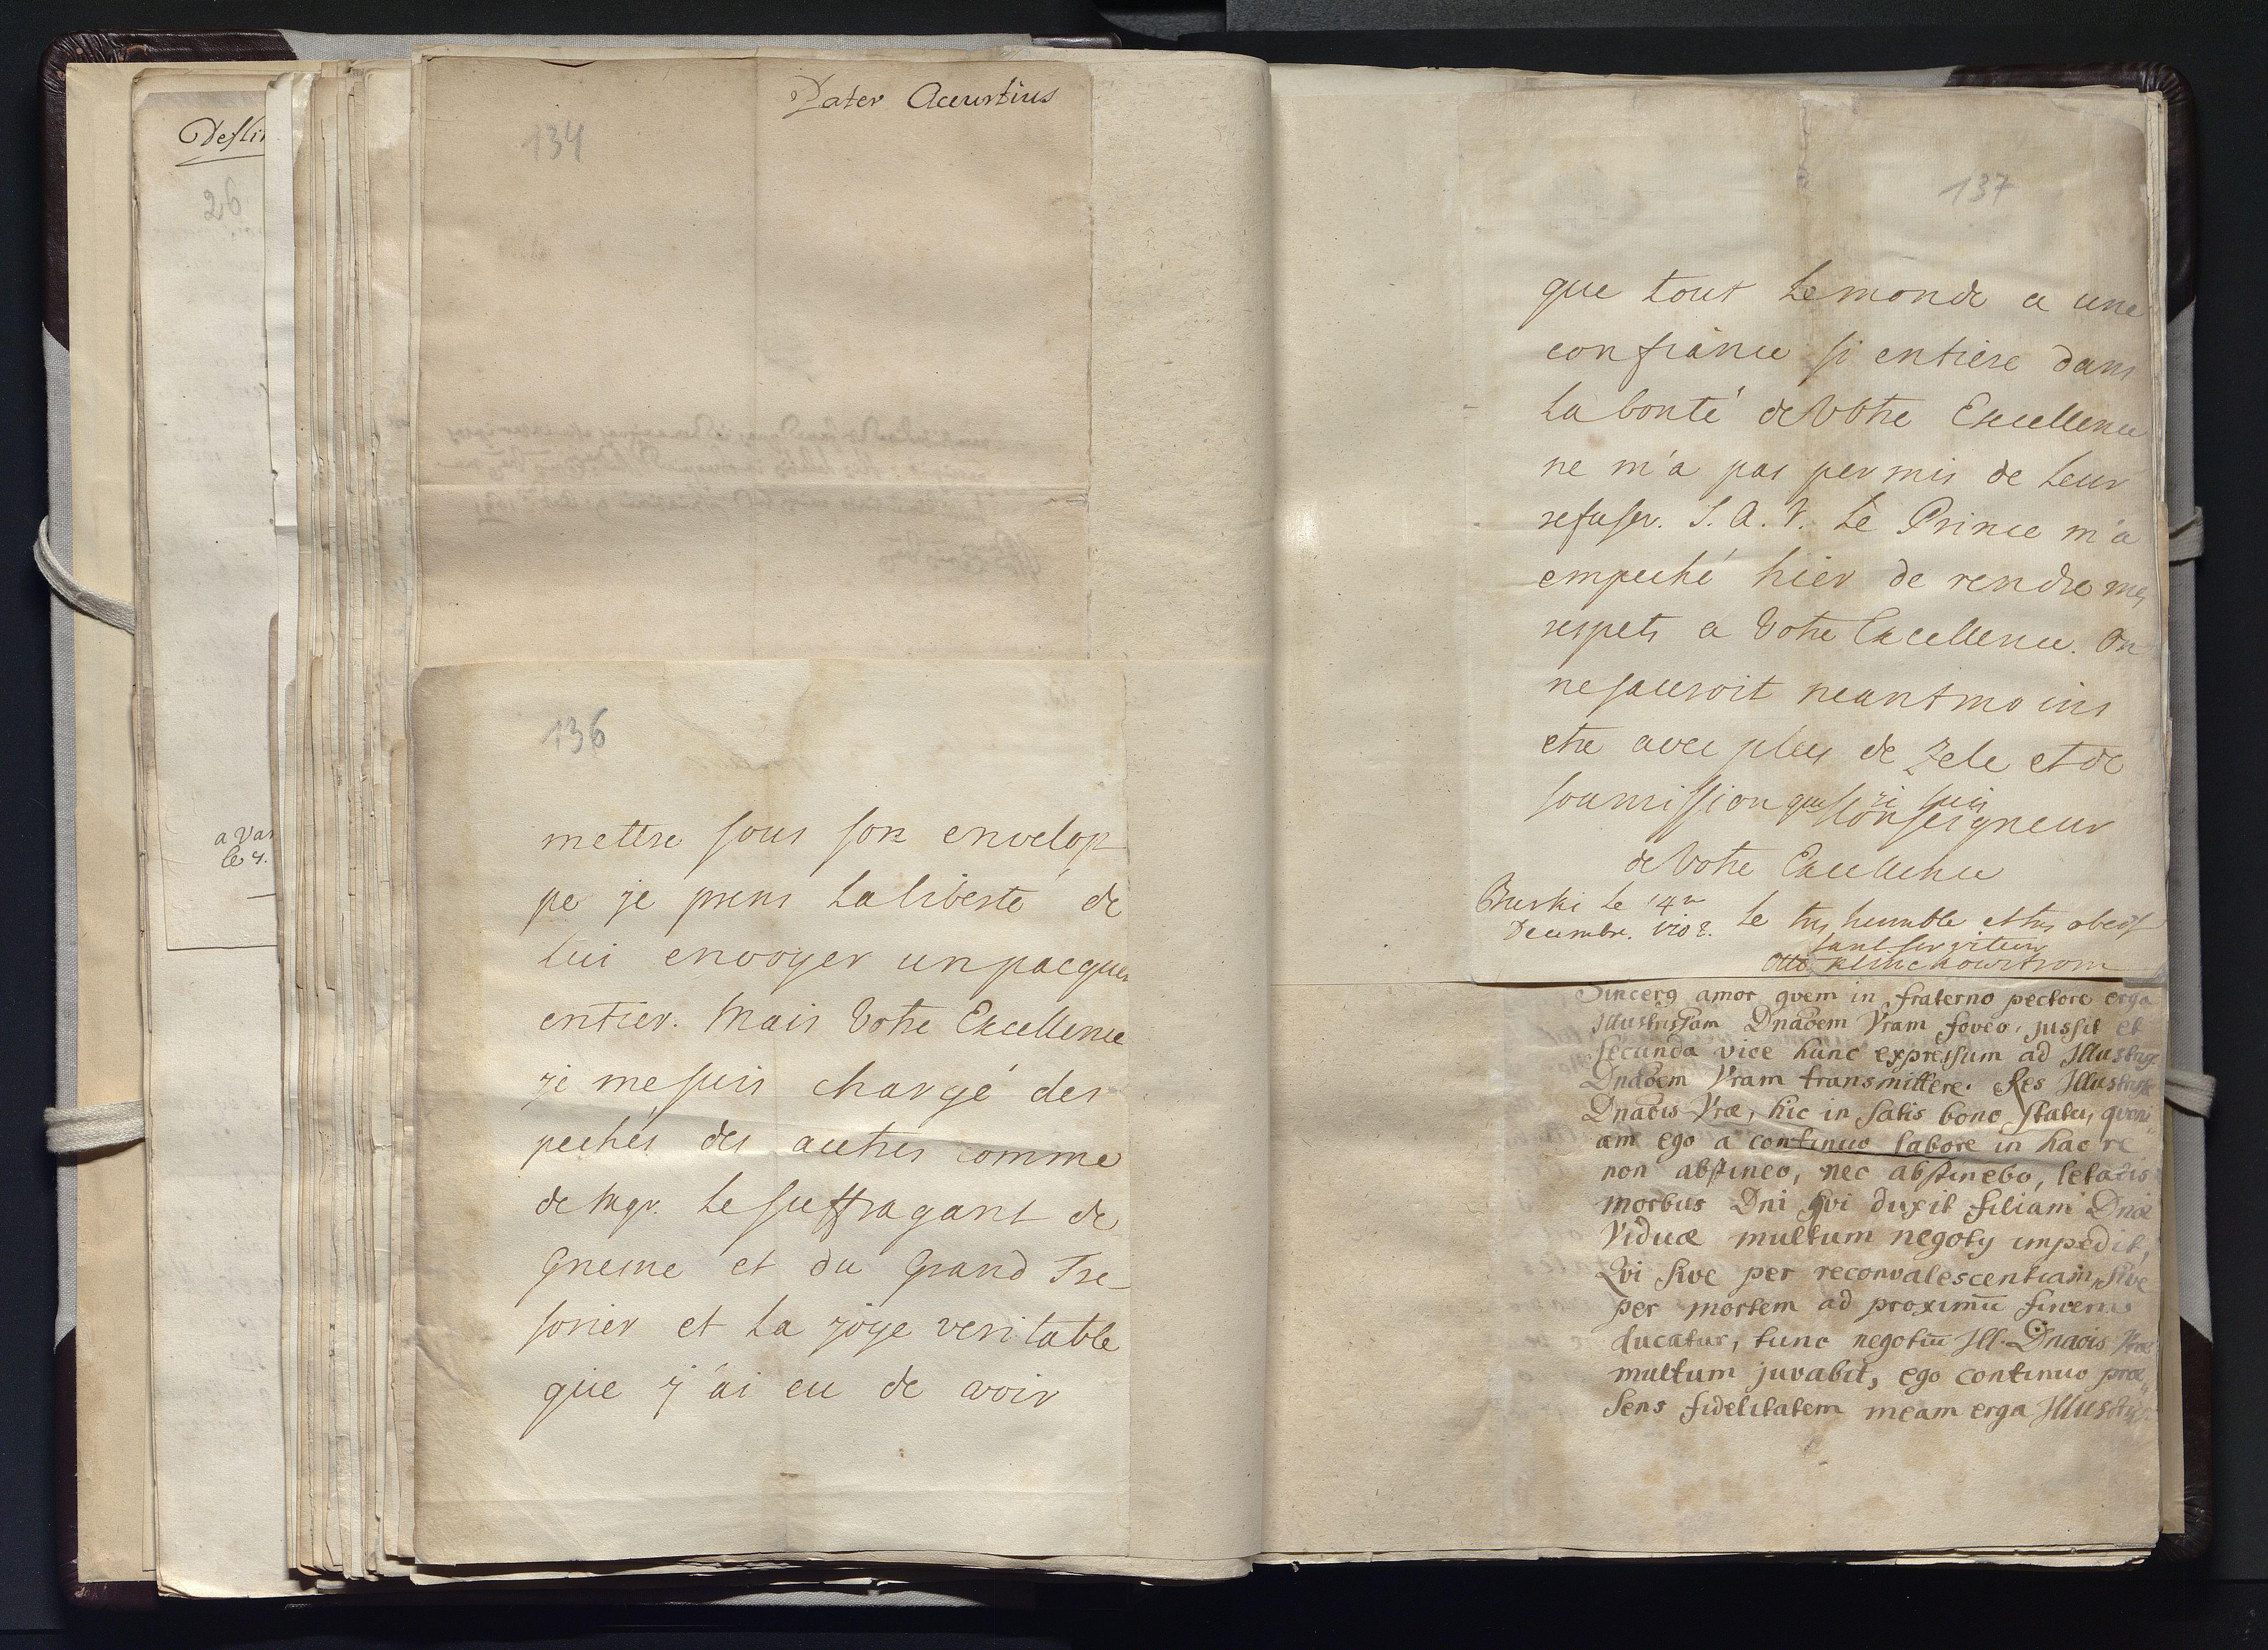 Destin
26
a Var
le 4.
Pater Acurtius
134
136
mettre sous son envelop
pe je prens la liberté de
lui envoyer un pacquet
entier. Mais Votre Excellence
je me suis chargé des
pechés des autres comme
de Mgr. le suffragant de
Gnesne et du Grand Tre_
sorier et la joye veritable
que j'ai eu de avoir
137
que tout le monde a une
confiance si entiere dans
la bonté de Votre Excellence
ne m'a pas permis de leur
refuser. S. A. R. le Prince m'a
empeché hier de rendre mes
respets a Votre Excellence. On
ne sauroit neantmoins
etre avec plus de zele et de
soumission que je suis
Monseigneur
de Votre Excellence
le 14m
Decembre. 1702. le tres humble et tres obeis
sant serviteur
Otto Klinckowstrom
Sincerq amor qvem in fraterno pectore erga
Illustrissam Dnaoem Vram foveo, jussit et
secunda vice hunc expressum ad Illustrss.
Dnaoem Vram transmittere. Res Illustriss
Dnaois Vræ, hic in satis bono statu, qvoni"
am ego a continuo labore in hac re
non abstineo, nec abstinebo, letalis
morbus Dni qvi duxit filiam Dnæ
Viduæ multum negoty impedit,
Qvi sive per reconvalescentiam, sive
per mortem ad proximū finem
ducatur, tunc negotiū Ill. Dnaois Vræ
multum juvabit, ego continuo præ"
sens fidelitatem meam erga Illustriss.